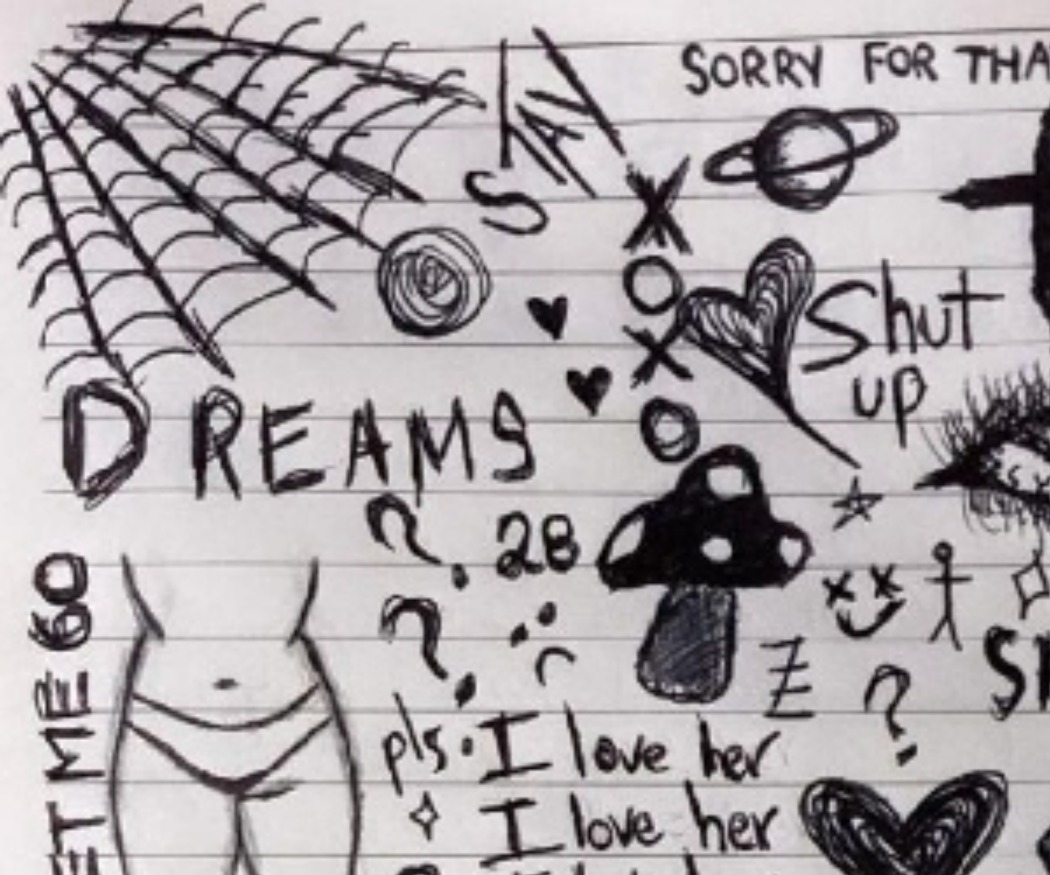 SORRY FOR THA
STAY
X
O
X
O
Shut
up
DREAMS
?
28
?
Z
?
pls. I love her
I love her
ET ME GO